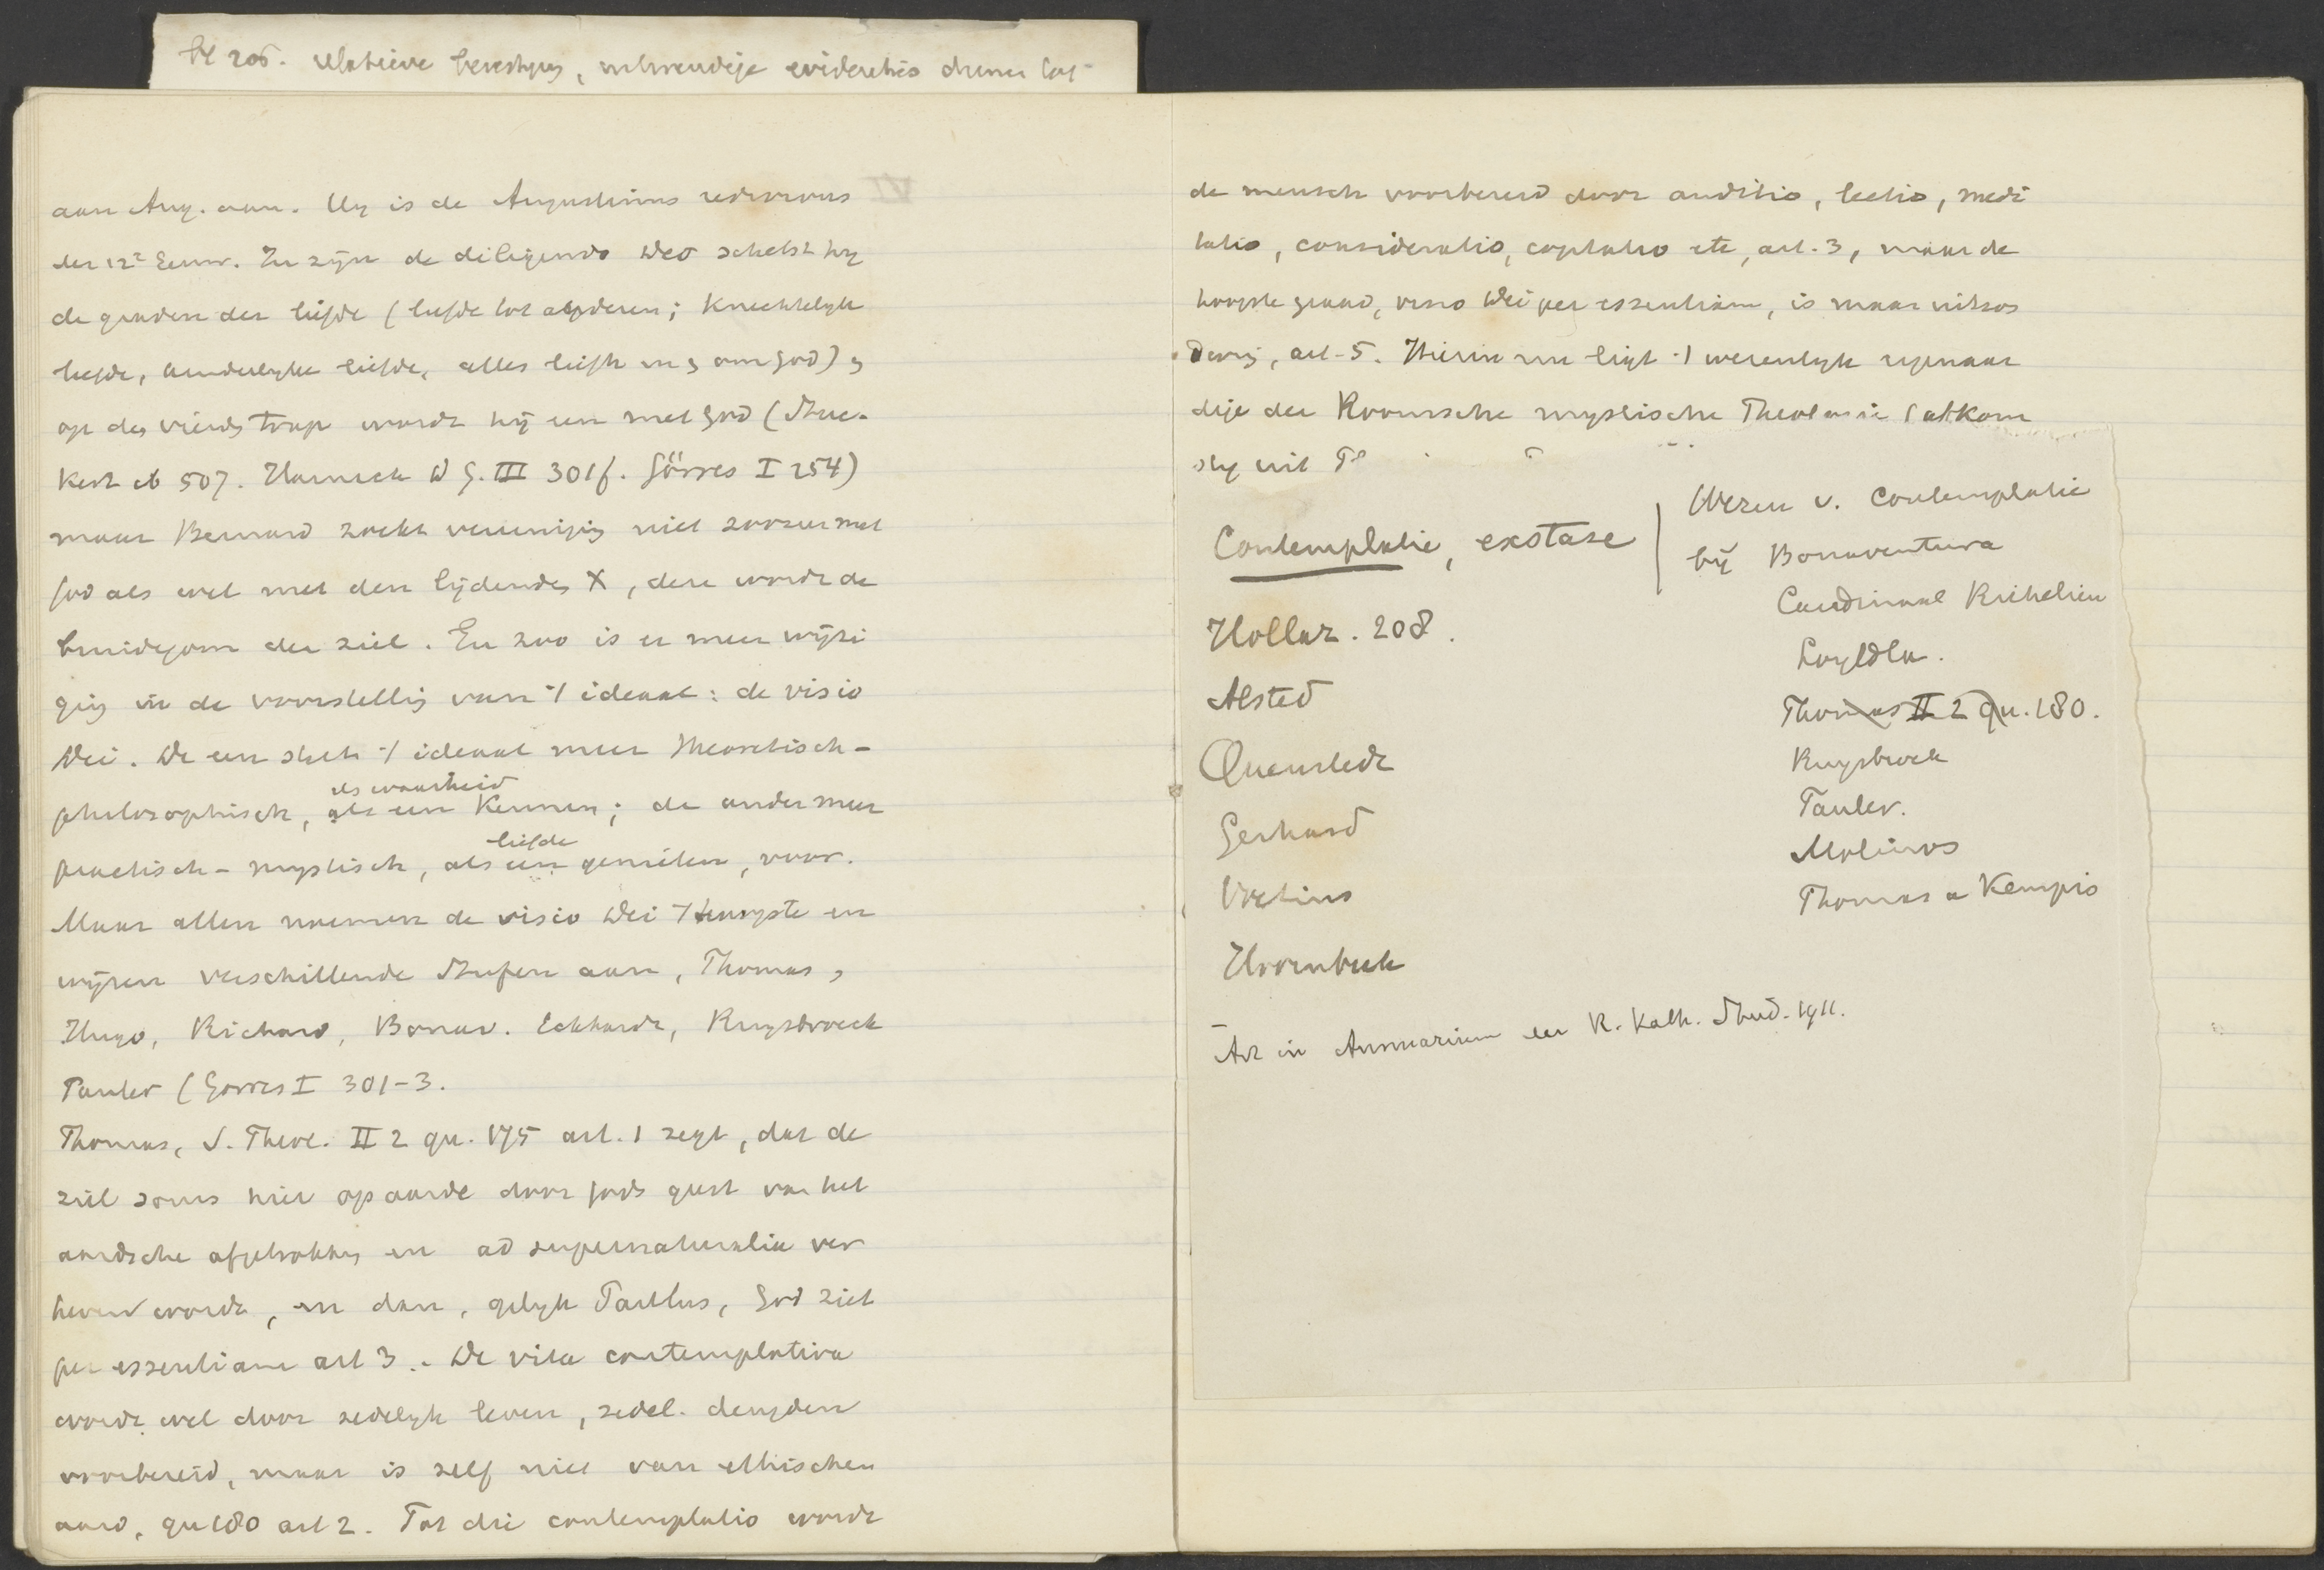 bl 206. relatieve
aan Aug. aan. Hy is de Augustinus redivivus
der 12e Eeuw. In zyn de diligendo Deo schetst hy
de graden der liefde (liefde tot anderen; knechtelyke
liefde, kinderlyke liefde, alles liefh. en om God) en
op den vierden trap wordt hij een met God (Stuc-
kert ab 507. Harnack D G. III 301f. Görres I 254)
maar Bernard zoekt vereeniging niet zoozeer met
God als wel met den lijdenden X, deze wordt de
bruidegom der ziel. En zoo is er meer wijzi
ging in de voorstelling van 't ideaal: de visio
Dei. De een stelt 't ideaal meer theoretisch-
als waarheid
philosophisch, als een kennen; de ander meer
liefde
practisch-mystisch, als een genieten, voor.
Maar allen noemen de visio Dei 't hoogste en
wijzen verschillende Stufen aan, Thomas,
Hugo, Richard, Bonav. Eckhardt, Ruysbroeck
Tauler (Görres I 301-3.
Thomas, S. Theol. II 2 qu. 175 art. 1 zegt, dat de
ziel soms hier op aarde door Gods geest van het
aardsche afgetrokken en ad supernaturalia ver
heven wordt, en dan, gelyk Paulus, God ziet
per essentiam art 3. De vita contemplativa
wordt wel door zedelyk leven, zedel. deugden
voorbereid, maar is zelf niet van ethischen
aard, qu 180 art 2. Tot die contemplatio wordt
de mensch voorbereid door auditio, lectio, medi
tatio, consideratio, cogitatio etc, art. 3, maar de
hoogste graad, visio Dei per essentiam, is maar uitzon
dering, art. 5. Hierin nu ligt 't wezenlyk eigenaar
dige der Roomsche mystische Theologie (afkom
stig uit
Contemplatie, exstase
Hollaz. 208.
Alsted
Quenstedt
Gerhard
Voetius
Hoornbeek
Wezen v. Contemplatie
bij Bonaventura
Cardinaal Richelieu
Loyola.
Thomas II 2 qu. 180.
Ruysbroek
Tauler.
Molinos
Thomas a Kempis
Art in Annuarium der R. Kath. Stud. 1911.